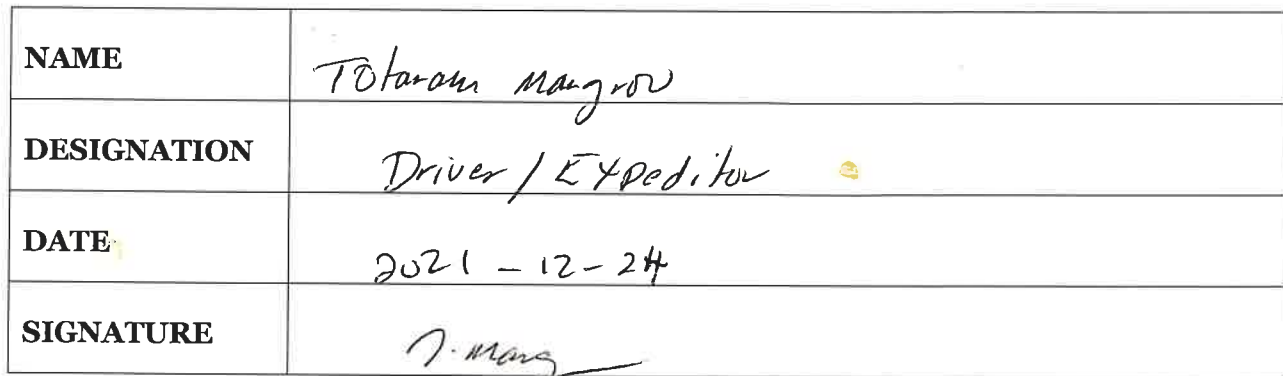 NAME Totaram Mangrow
DESIGNATION Driver / Expeditor
DATE 2021 - 12 - 24
SIGNATURE T. Mang